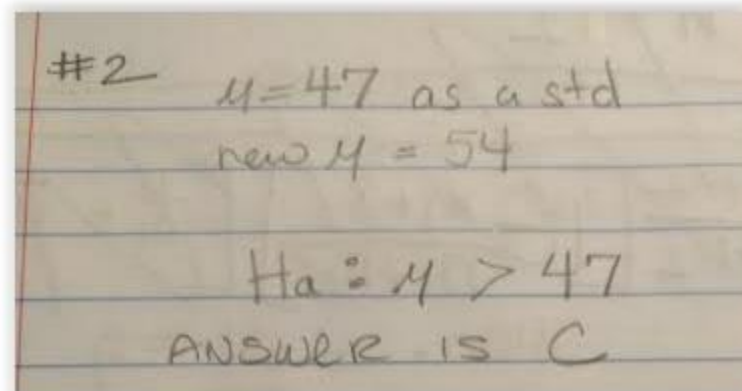 #2 μ=47 as a std
new μ = 54
Ha: μ > 47
ANSWER IS C